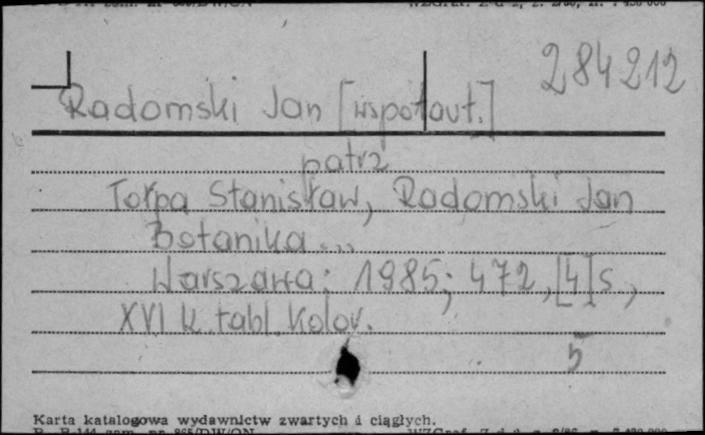 284212
Radomski Jan [wspołaut.]
patrz
Tołpa Stanisław, Radomski Jan
Botanika...
Warszawa: 1985; 472, [4] s,
XVI k. tabl. kolor.
5
Karta katalogowa wydawnictw zwartych i ciągłych.